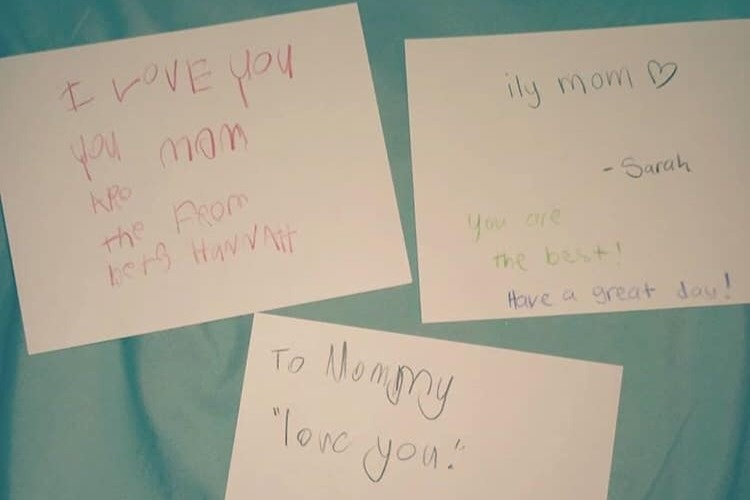 I LOVE YOU
you mom
Are
the From
bers HANNAH
ily mom ♡
- Sarah
You are
the best!
Have a great day!
To Mommy
"love you."